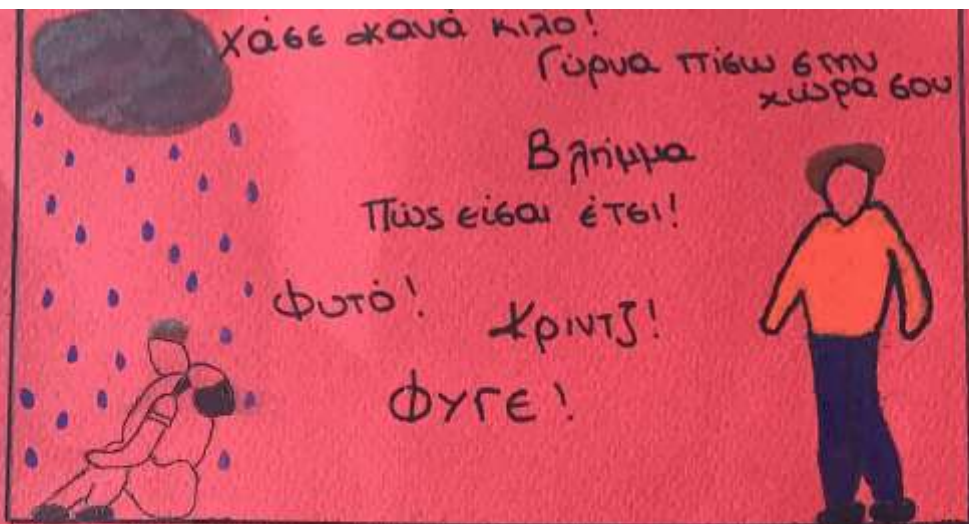 Χάσε κανά κιλο!
Γύρνα πίσω στην
χώρα σου
Βλήμμα
Πώς είσαι έτσι!
Φυτό!
Κριντζ!
ΦΥΓΕ!